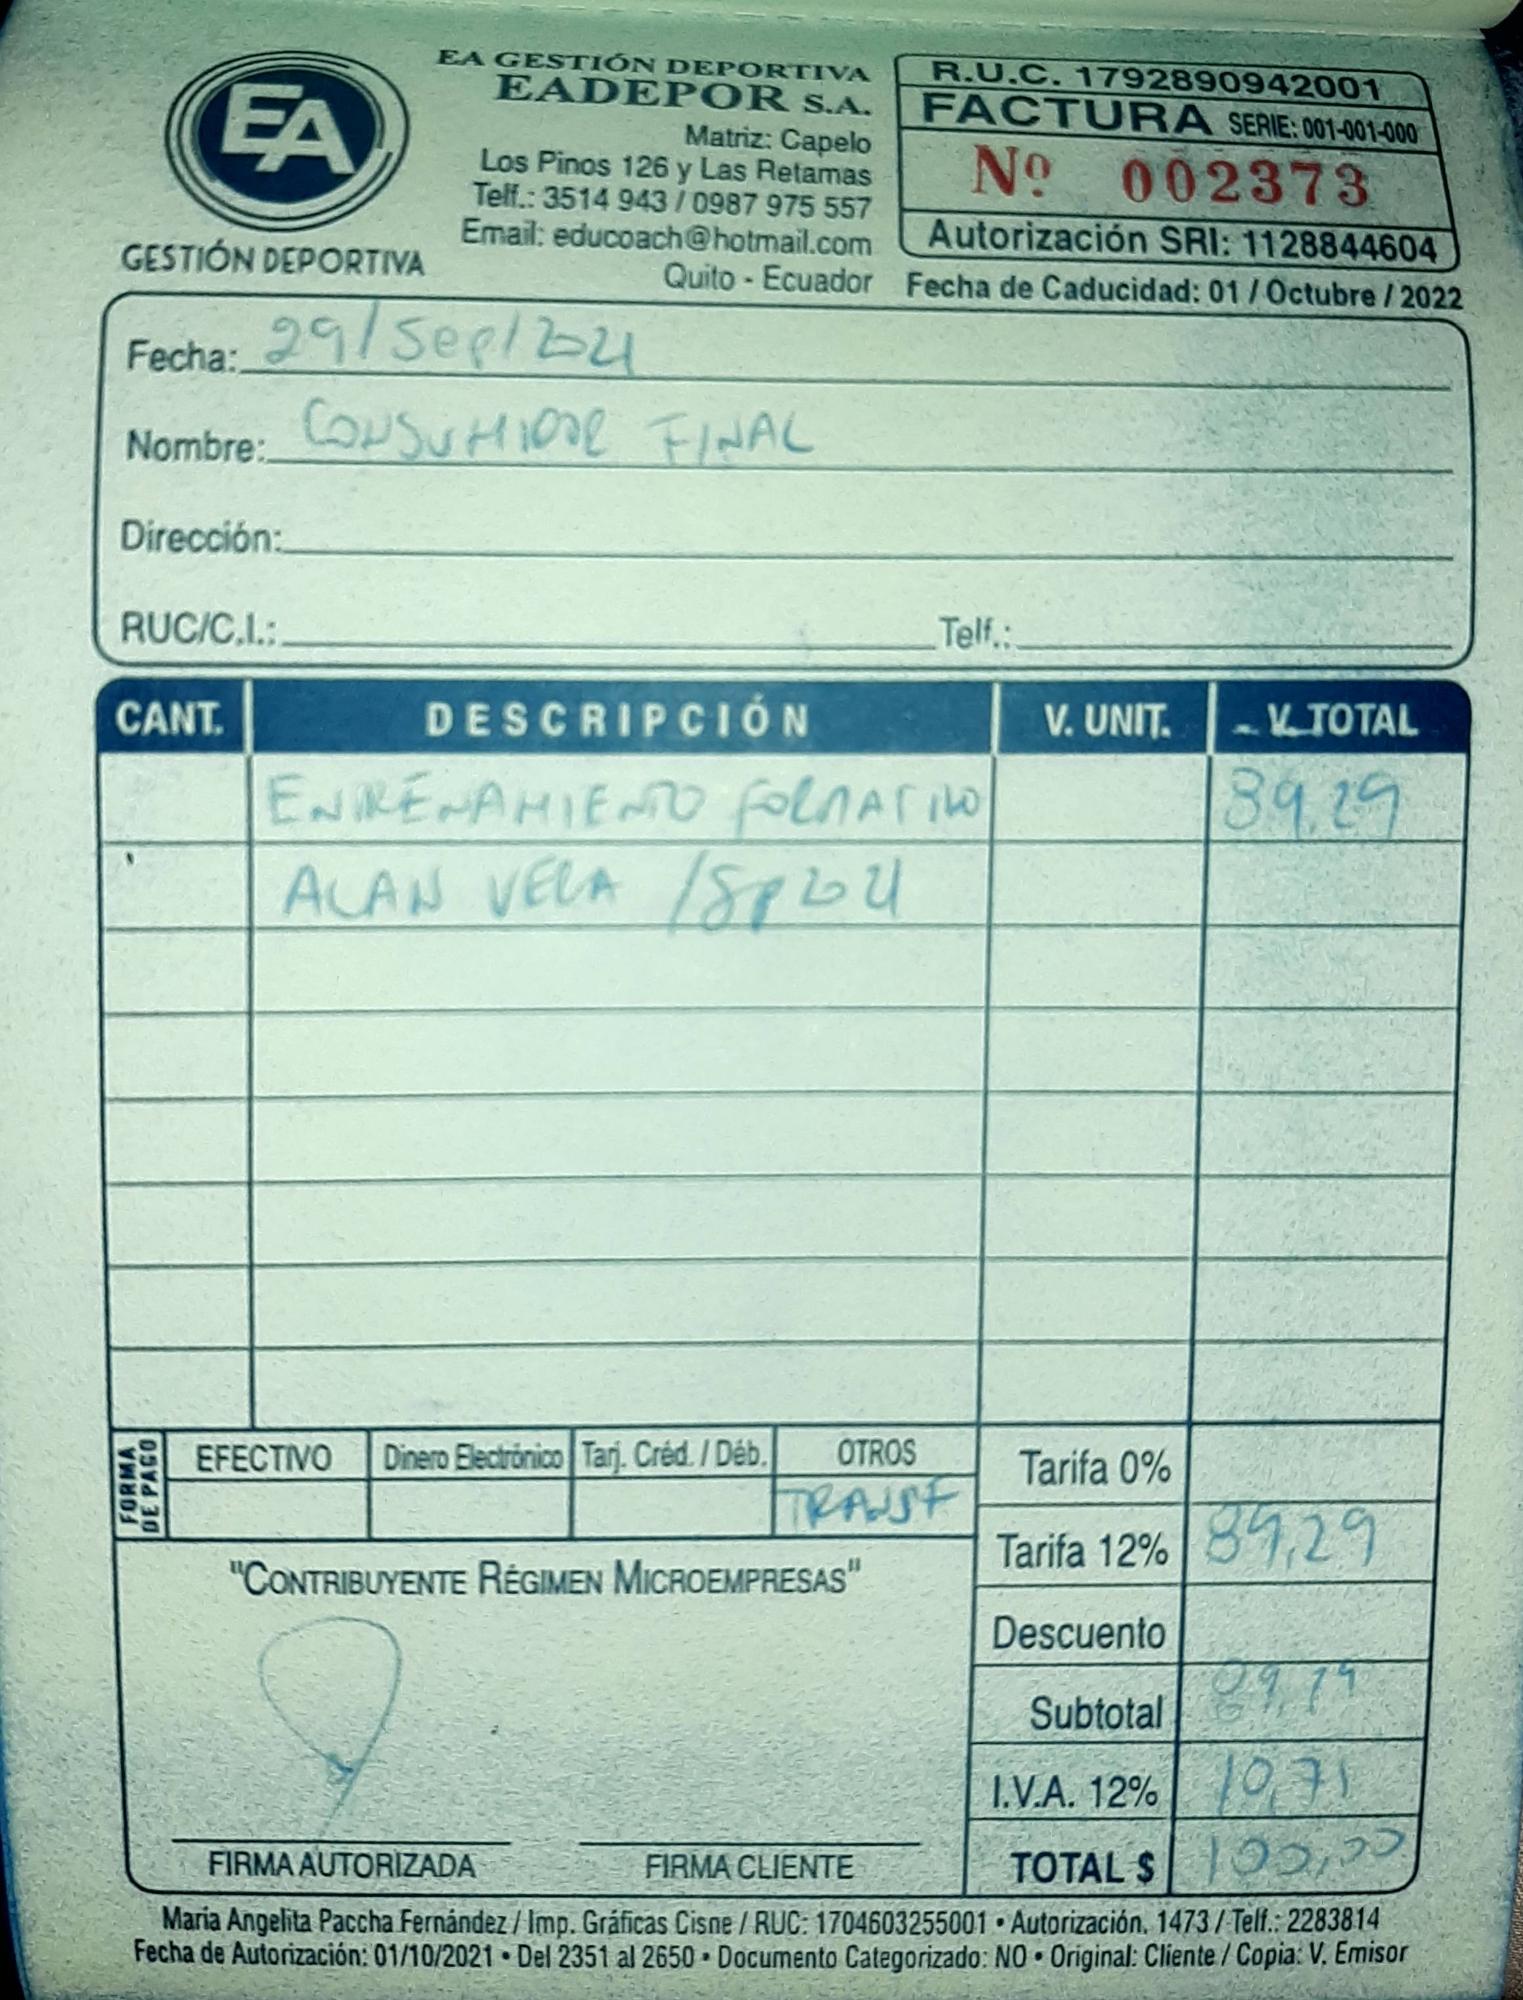 EA
GESTIÓN DEPORTIVA
EA GESTIÓN DEPORTIVA
EADEPOR S.A.
Matriz: Capelo
Los Pinos 126 y Las Retamas
Telf.: 3514 943 / 0987 975 557
Email: educoach@hotmail.com
Quito - Ecuador
R.U.C. 1792890942001
FACTURA SERIE: 001-001-000
Nº 002373
Autorización SRI: 1128844604
Fecha de Caducidad: 01 / Octubre / 2022
Fecha: 29/Sep/2021
Nombre: CONSUMIDOR FINAL
Dirección:
RUC/C.I.: Telf.:
CANT. DESCRIPCIÓN V. UNIT. V. TOTAL
ENTRENAMIENTO FORMATIVO 89,29
ALAN VERA /Sep 2021
FORMA DE PAGO
EFECTIVO Dinero Electrónico Tarj. Créd. / Déb. OTROS
TRANSF
Tarifa 0%
Tarifa 12% 89,29
Descuento
Subtotal 89,29
I.V.A. 12% 10,71
TOTAL $ 100,00
"CONTRIBUYENTE RÉGIMEN MICROEMPRESAS"
FIRMA AUTORIZADA FIRMA CLIENTE
María Angelita Paccha Fernández / Imp. Gráficas Cisne / RUC: 1704603255001 • Autorización. 1473 / Telf.: 2283814
Fecha de Autorización: 01/10/2021 • Del 2351 al 2650 • Documento Categorizado: NO • Original: Cliente / Copia: V. Emisor